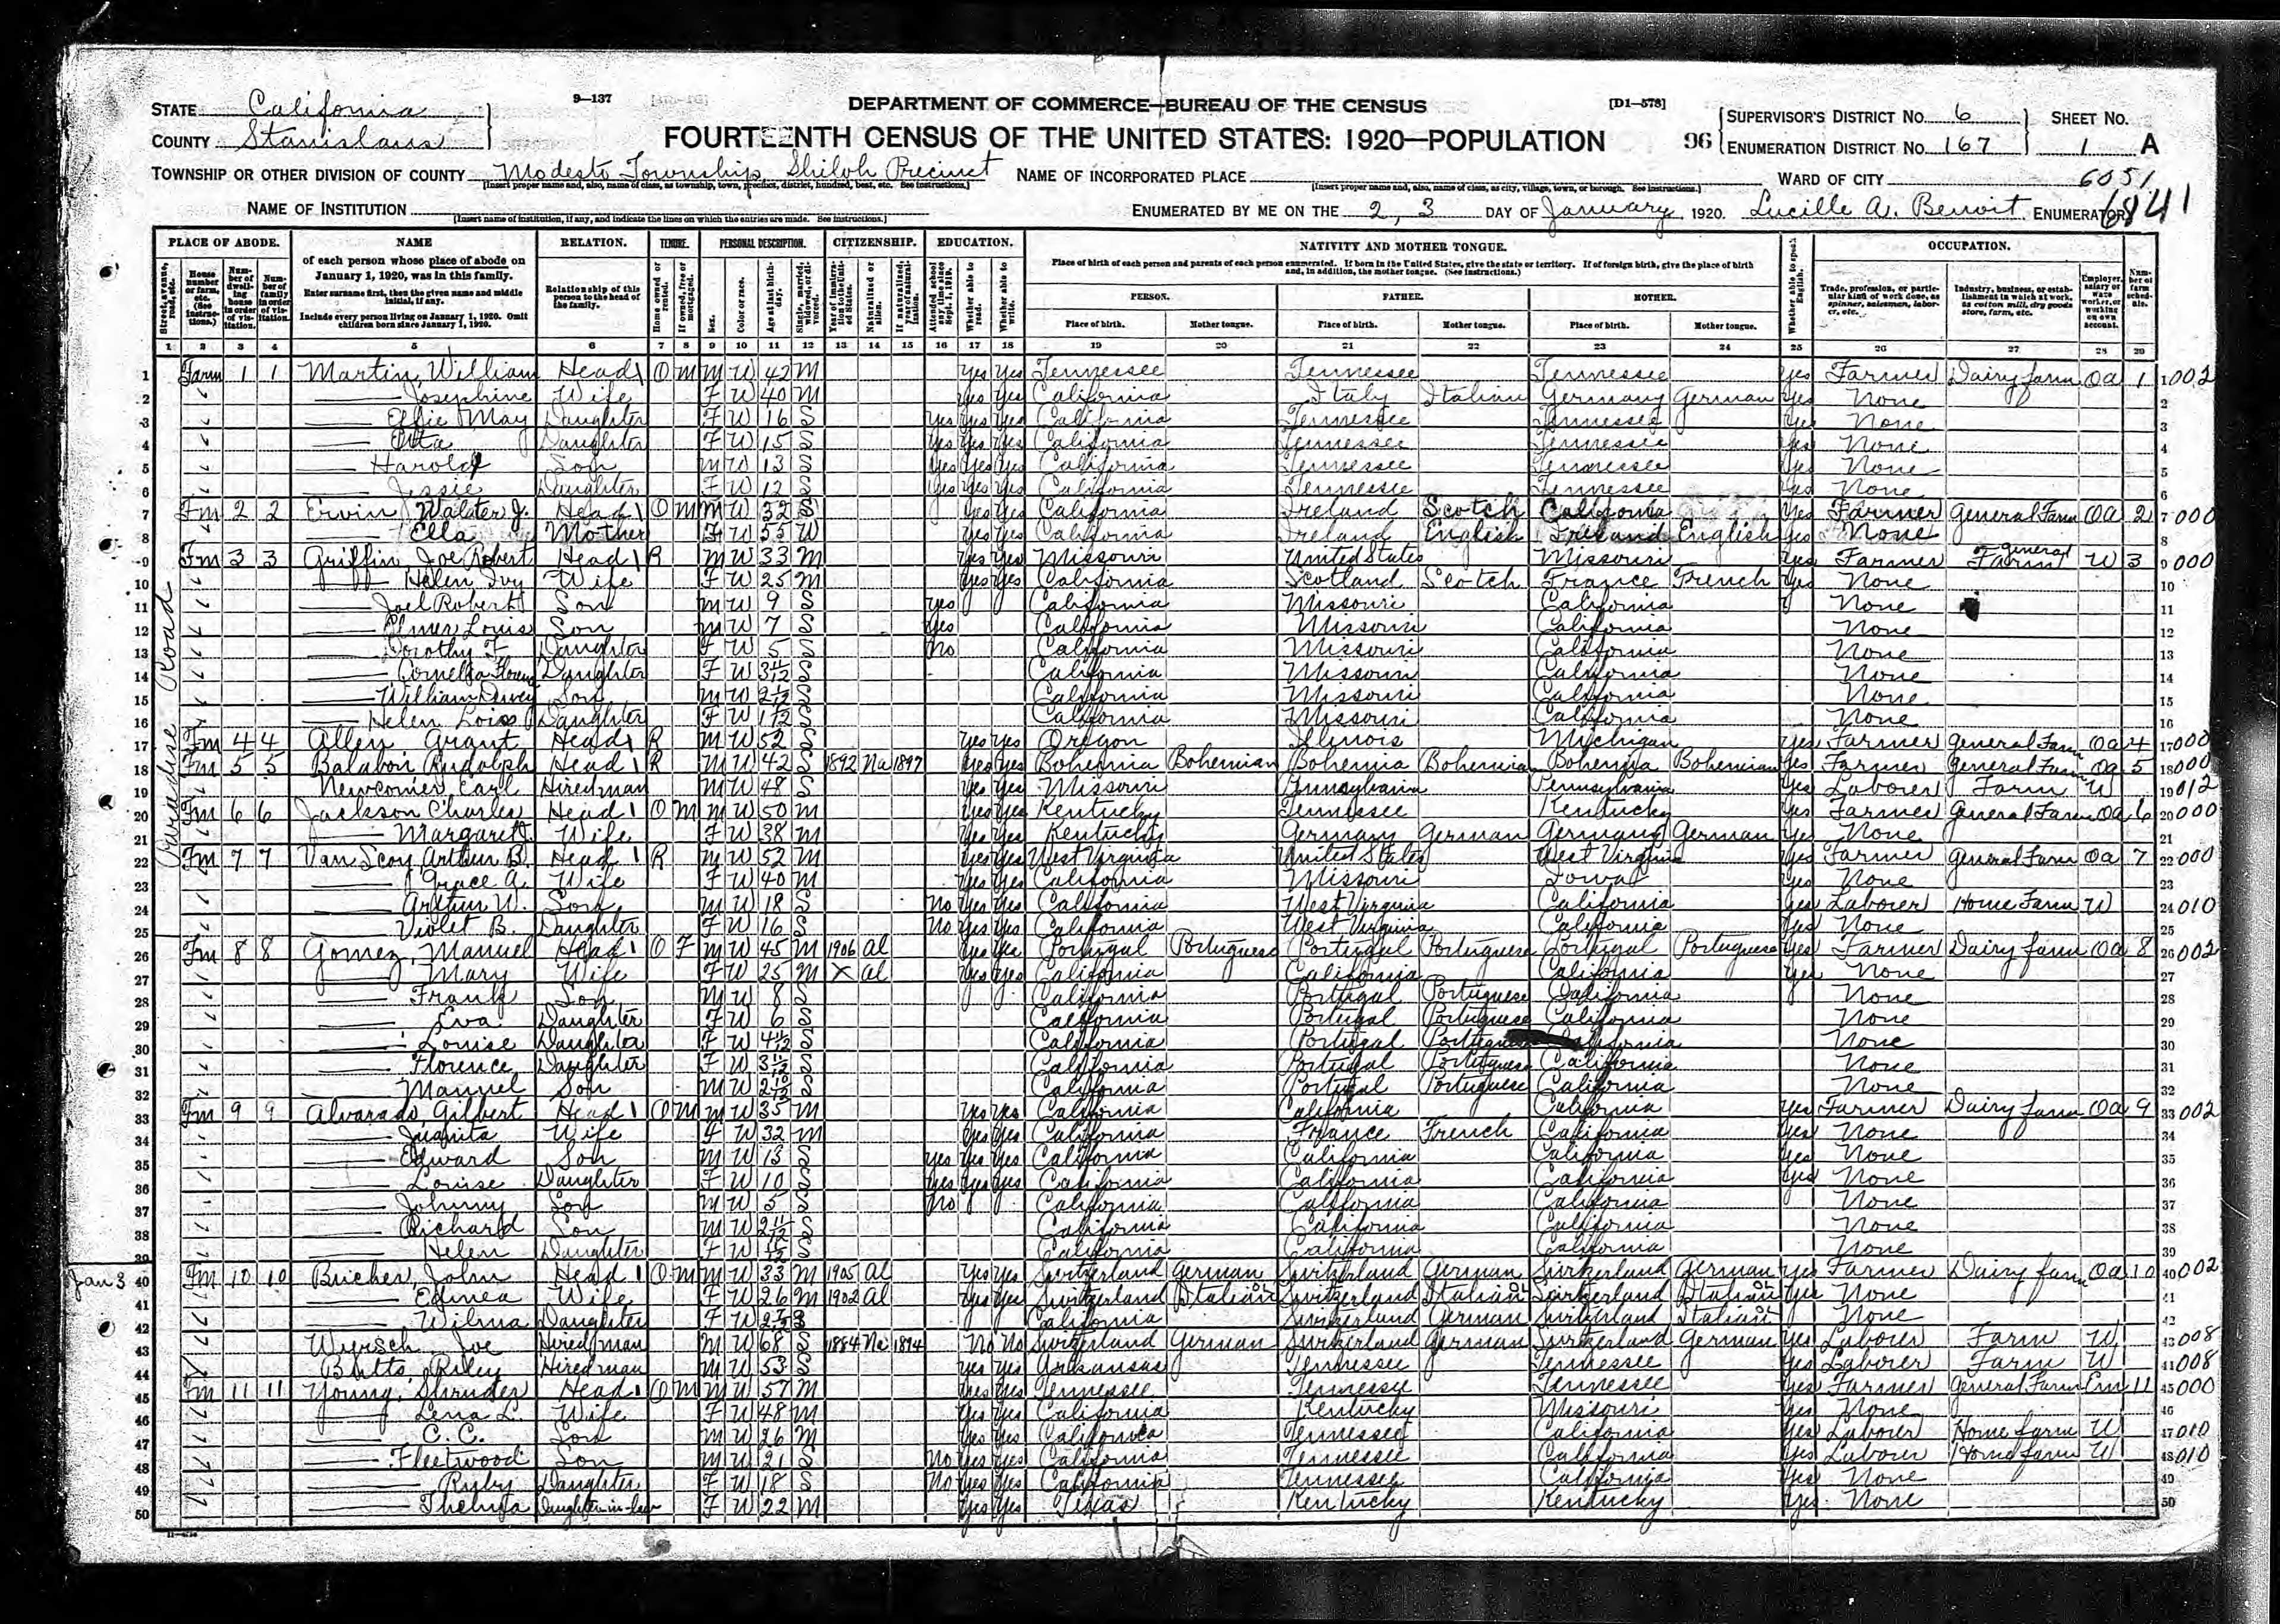 9—137
DEPARTMENT OF COMMERCE—BUREAU OF THE CENSUS
[D1—578]
STATE California
COUNTY Stanislaus
FOURTEENTH CENSUS OF THE UNITED STATES: 1920—POPULATION
96
SUPERVISOR'S DISTRICT NO. 6
ENUMERATION DISTRICT NO. 167
SHEET NO.
1 A
TOWNSHIP OR OTHER DIVISION OF COUNTY Modesto Township Shiloh Precinct
[Insert proper name and, also, name of class, as township, town, precinct, district, hundred, beat, etc. See instructions.]
NAME OF INCORPORATED PLACE
[Insert proper name and, also, name of class, as city, village, town, or borough. See instructions.]
WARD OF CITY
6051
NAME OF INSTITUTION
[Insert name of institution, if any, and indicate the lines on which the entries are made. See instructions.]
ENUMERATED BY ME ON THE 2, 3 DAY OF January, 1920. Lucille A. Benoit, ENUMERATOR
6841
PLACE OF ABODE. NAME RELATION. TENURE. PERSONAL DESCRIPTION. CITIZENSHIP. EDUCATION. NATIVITY AND MOTHER TONGUE. OCCUPATION.
of each person whose place of abode on January 1, 1920, was in this family.
Enter surname first, then the given name and middle initial, if any.
Include every person living on January 1, 1920. Omit children born since January 1, 1920.
Relationship of this person to the head of the family.
Place of birth of each person and parents of each person enumerated. If born in the United States, give the state or territory. If of foreign birth, give the place of birth and, in addition, the mother tongue. (See instructions.)
PERSON. FATHER. MOTHER.
Place of birth. Mother tongue. Place of birth. Mother tongue. Place of birth. Mother tongue.
1 2 3 4 5 6 7 8 9 10 11 12 13 14 15 16 17 18 19 20 21 22 23 24 25 26 27 28 29
Paradise Road
1 Farm 1 1 Martin, William Head 1 O M M W 42 M Yes Yes Tennessee Tennessee Tennessee Yes Farmer Dairy farm Oa 1 1 002
2 Josephine Wife F W 40 M Yes Yes California Italy Italian Germany German Yes None 2
3 Effie May Daughter F W 16 S Yes Yes Yes California Tennessee Tennessee Yes None 3
4 Etta Daughter F W 15 S Yes Yes Yes California Tennessee Tennessee Yes None 4
5 Harold Son M W 13 S Yes Yes Yes California Tennessee Tennessee Yes None 5
6 Jessie Daughter F W 12 S Yes Yes Yes California Tennessee Tennessee Yes None 6
7 Fm 2 2 Ervin, Walster J. Head 1 O M M W 32 S Yes Yes California Ireland Scotch California Yes Farmer General Farm Oa 2 7 000
8 Ella Mother F W 55 W Yes Yes California Ireland English Ireland English Yes None 8
9 Fm 3 3 Griffin, Joe Robert Head 1 R M W 33 M Yes Yes Missouri United States Missouri Yes Farmer General Farm W 3 9 000
10 Helen Ivy Wife F W 25 M Yes Yes California Scotland Scotch France French Yes None 10
11 Joel Robert Son M W 9 S Yes California Missouri California None 11
12 Elmer Louis Son M W 7 S Yes California Missouri California None 12
13 Dorothy F Daughter F W 5 S No California Missouri California None 13
14 Cornelia Florence Daughter F W S California Missouri California None 14
15 William Dewey Son M W S California Missouri California None 15
16 Helen Lois Daughter F W S California Missouri California None 16
17 Fm 4 4 Allen, Grant Head 1 R M W 52 Yes Yes Oregon Illinois Michigan Yes Farmer General Farm Oa 4 17 000
18 Fm 5 5 Balabon, Rudolph Head 1 R M W 42 S 1892 Na 1897 Yes Yes Bohemia Bohemian Bohemia Bohemian Bohemia Bohemian Yes Farmer General Farm Oa 5 18 000
19 Newcomer, Earl Hired man M W 48 S Yes Yes Missouri Pennsylvania Pennsylvania Yes Laborer Farm W 19 012
20 Fm 6 6 Jackson Charles Head 1 O M M W 50 M Yes Yes Kentucky Tennessee Kentucky Yes Farmer General Farm Oa 6 20 000
21 Margaret J. Wife F W 38 M Yes Yes Kentucky Germany German Germany German Yes None 21
22 Fm 7 7 Van Scoy, Arthur B. Head 1 R M W 52 M Yes Yes West Virginia United States West Virginia Yes Farmer General Farm Oa 7 22 000
23 Grace A. Wife F W 40 M Yes Yes California Missouri Iowa Yes None 23
24 Arthur W. Son M W 18 S No Yes Yes California West Virginia California Yes Laborer Home Farm W 24 010
25 Violet B. Daughter F W 16 S No Yes Yes California West Virginia California Yes None 25
26 Fm 8 8 Gomez, Manuel Head 1 O F M W 45 M 1906 Al Yes Yes Portugal Portuguese Portugal Portuguese Portugal Portuguese Yes Farmer Dairy farm Oa 8 26 002
27 Mary Wife F W 25 M X Al Yes Yes California California California Yes None 27
28 Frank Son M W 8 S California Portugal Portuguese California None 28
29 Eva Daughter F W 6 S California Portugal Portuguese California None 29
30 Louise Daughter F W S California Portugal Portuguese California None 30
31 Florence Daughter F W S California Portugal Portuguese California None 31
32 Manuel Son M W S California Portugal Portuguese California None 32
33 Fm 9 9 Alvarado, Gilbert Head 1 O M M W 35 M Yes Yes California California California Yes Farmer Dairy farm Oa 9 33 002
34 Juanita Wife F W 32 M Yes Yes California France French California Yes None 34
35 Edward Son M W 13 S Yes Yes Yes California California California Yes None 35
36 Louise Daughter F W 10 S Yes Yes Yes California California California Yes None 36
37 Johnny Son M W 5 S No California California California None 37
38 Richard Son M W S California California California None 38
39 Helen Daughter F W S California California California None 39
Jan 3 40 Fm 10 10 Bucher, John Head 1 O M M W 33 M 1905 Al Yes Yes Switzerland German Switzerland German Switzerland German Yes Farmer Dairy farm Oa 10 40 002
41 Edmea Wife F W 26 M 1902 Al Yes Yes Switzerland Italian Switzerland Italian Switzerland Italian Yes None 41
42 Wilma Daughter F W S California Switzerland German Switzerland Italian None 42
43 Wyrsch, Joe Hired man M W 68 S 1884 Na 1894 No No Switzerland German Switzerland German Switzerland German Yes Laborer Farm W 43 008
44 Butts, Riley Hired man M W 53 S Yes Yes Arkansas Tennessee Tennessee Yes Laborer Farm W 44 008
45 Fm 11 11 Young, Head 1 O M M W 57 M Yes Yes Tennessee Tennessee Tennessee Yes Farmer General Farm Em 11 45 000
46 Lena L. Wife F W 48 M Yes Yes California Kentucky Missouri Yes None 46
47 C. C. Son M W 26 M Yes Yes California Tennessee California Yes Laborer Home farm W 47 010
48 Fleetwood Son M W 21 S No Yes Yes California Tennessee California Yes Laborer Home farm W 48 010
49 Ruby Daughter F W 18 S No Yes Yes California Tennessee California Yes None 49
50 Thelma Daughter-in-law F W 22 M Yes Yes Texas Kentucky Kentucky Yes None 50